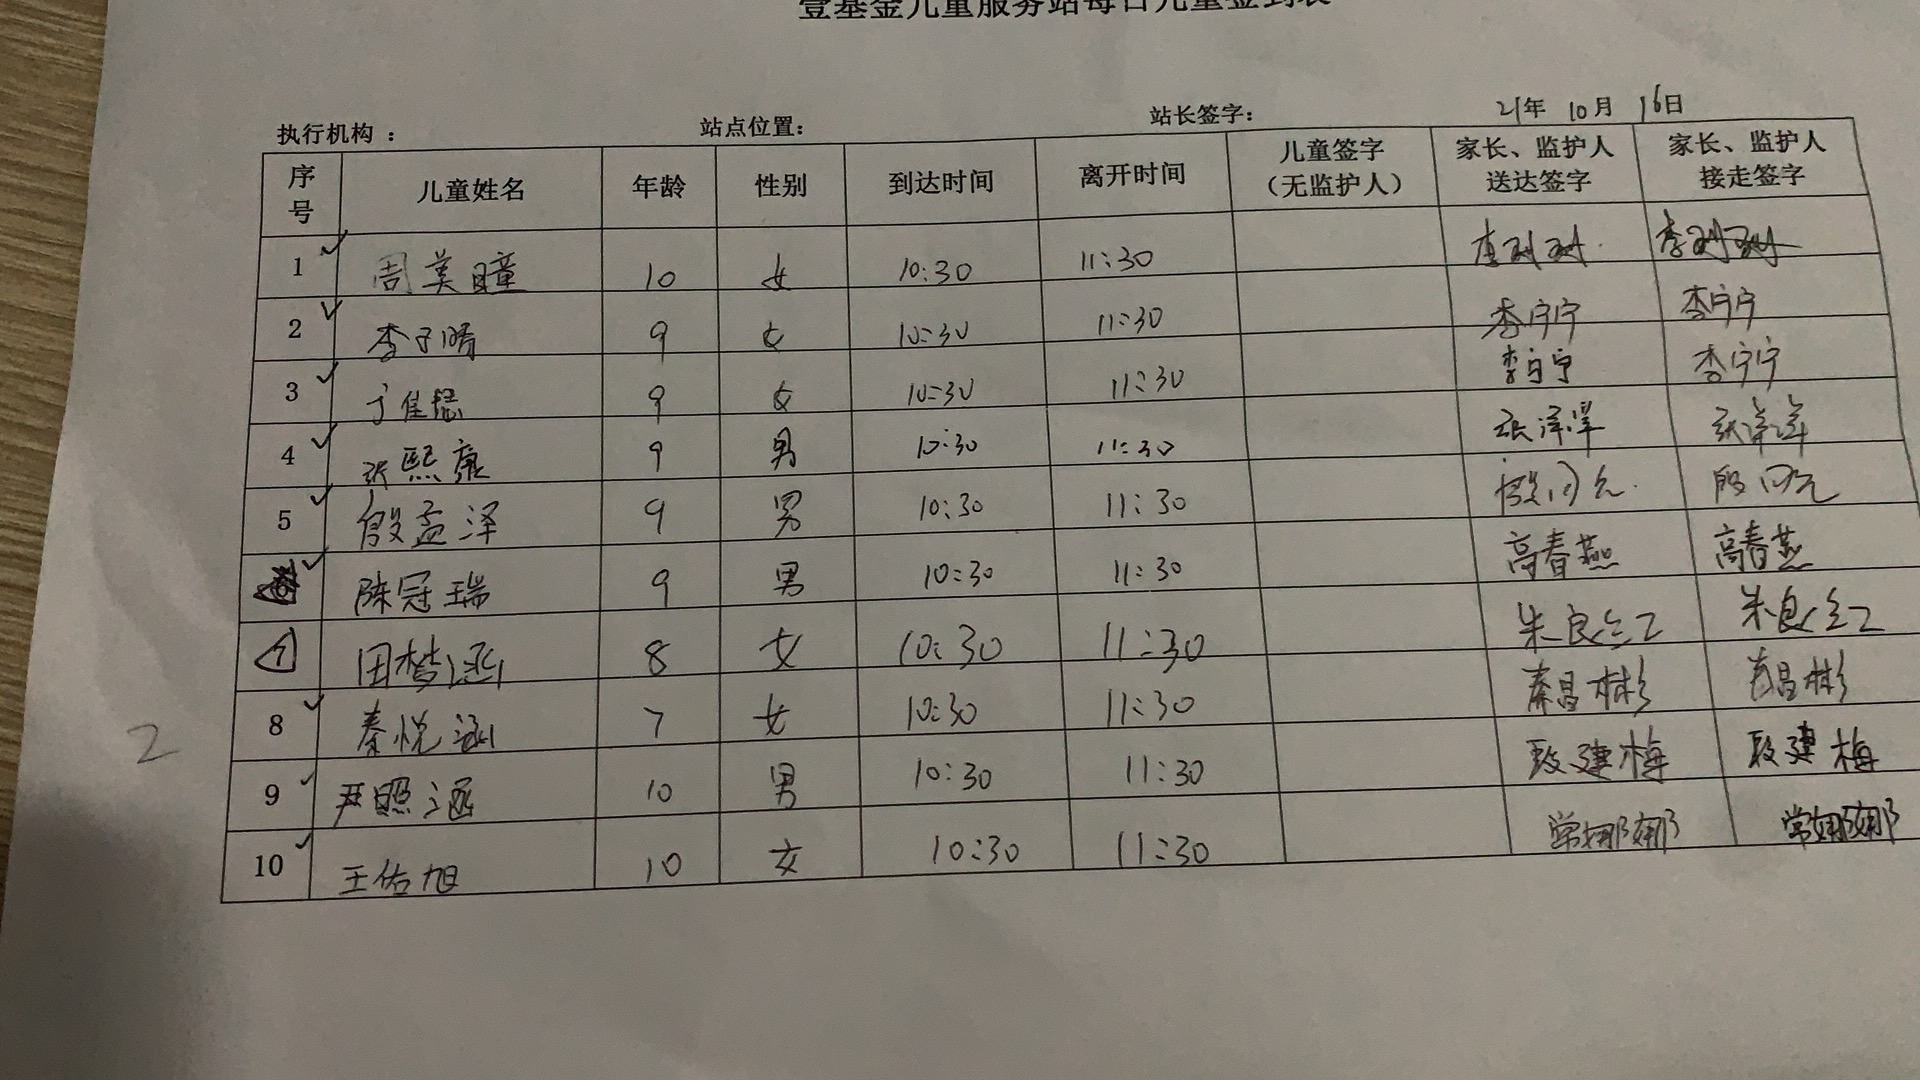 壹基金儿童服务站每日儿童签到表
执行机构： 站点位置： 站长签字： 21年 10月 16日
序号 儿童姓名 年龄 性别 到达时间 离开时间 儿童签字（无监护人） 家长、监护人送达签字 家长、监护人接走签字
1 周美瞳 10 女 10:30 11:30
2 李子晴 9 女 10:30 11:30 李宁宁 李宁宁
3 于佳 9 女 10:30 11:30 李宁宁 李宁宁
4 张熙康 9 男 10:30 11:30 张泽泽 张洋洋
5 殷孟泽 9 男 10:30 11:30
陈冠瑞 9 男 10:30 11:30 高春燕 高春燕
7 田梦涵 8 女 10:30 11:30 朱良红 朱良红
8 秦悦涵 7 女 10:30 11:30 秦昌彬 秦昌彬
2
9 尹照涵 10 男 10:30 11:30 段建梅 段建梅
10 王佑旭 10 女 10:30 11:30 常娜娜 常娜娜